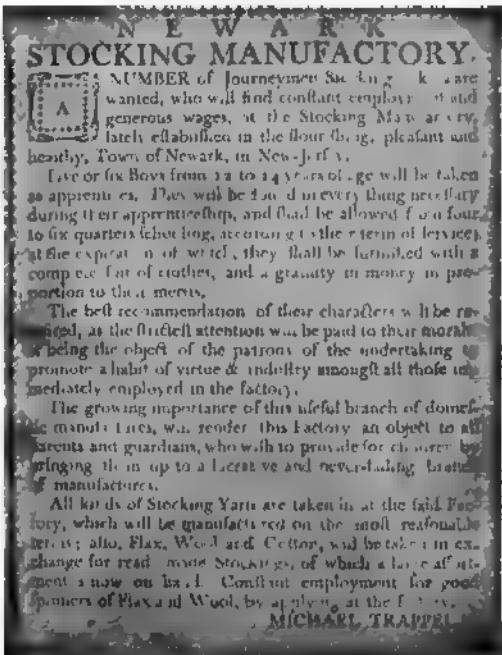 NEWARK
STOCKING MANUFACTORY.
A NUMBER of Journeymen are
wanted, who will find conſtant and
generous wages, at the Stocking
lately eſtabliſhed in the pleaſant and
Town of Newark, in
or ſix Boys from 12 to 14 years of age will be taken
as They will be in every thing neceſſary
during their apprenticeſhip, and ſhall be allowed from four
to ſix quarters according to their term of
at the of they ſhall be furniſhed with a
ſuit of clothes, and a gratuity in money in pro-
portion to their merits.
The beſt recommendation of their characters will be
as the ſtricteſt attention will be paid to their
being the object of the patrons of the undertaking to
promote a habit of virtue & induſtry amongſt all thoſe im-
mediately employed in the factory.
The growing importance of this uſeful branch of
will render this Factory an object to all
parents and guardians, who wiſh to provide for children by
bringing them up to a lucrative and never-failing
of manufactures.
All kinds of Stocking Yarn are taken in at the ſaid
which will be manufactured on the moſt reaſonable
alſo, Flax, Wool and Cotton, will be taken in ex-
change for ready made Stockings, of which a large aſſort-
ment is now on hand. Conſtant employment for good
Spinners of Flax and Wool, by applying at the
MICHAEL